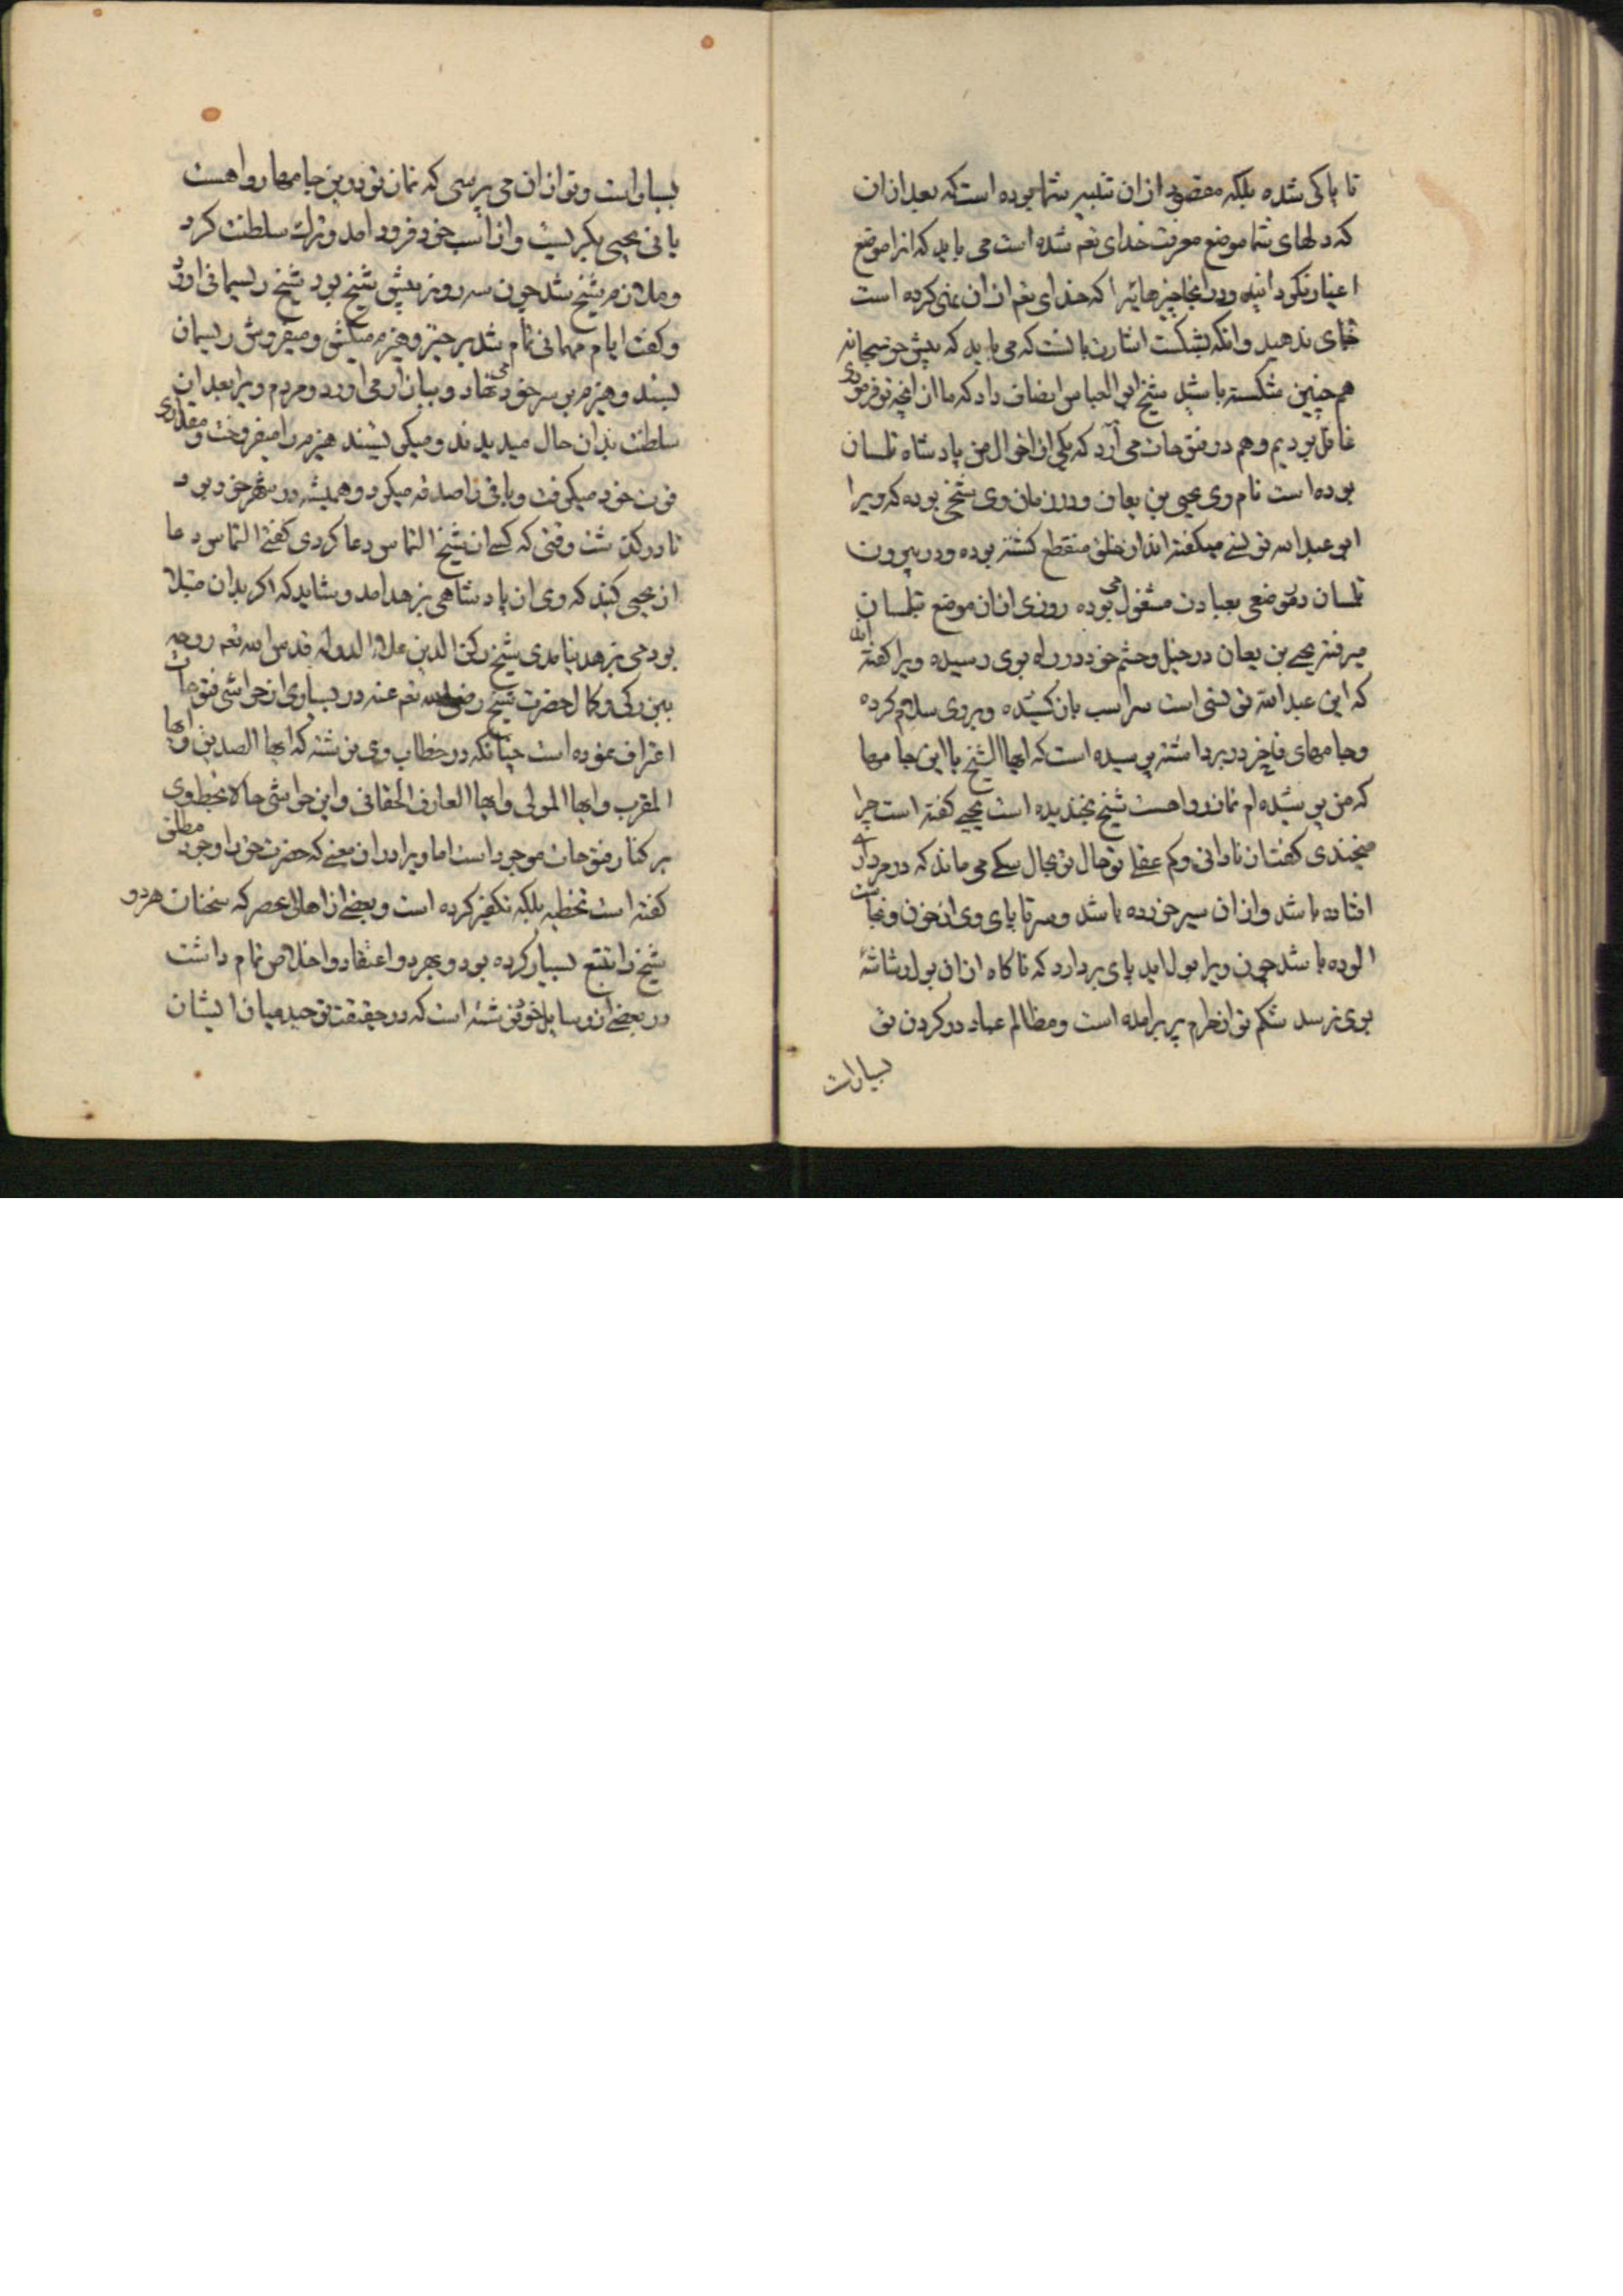 نا پاکی شده بلکه مقصود ازان تنبیه شما بوده است که بعد ازان
که دلهای شما موضع معرفت خدای تعم شده است می باید که انرا موضع
اغیار نکردانید ودر انجا چیزهائیرا که خدای تعم ازان نهی کرده است
جای ندهید وانکه بشکست اشارت بانست که می باید که پیش جوبحانه
هم چنین شکسته باشید شیخ ابو العباس انصاف داد که ما از انچه تو فرمودی
غافل بودیم وهم در فتوحات می آرد که یکی از اخوال من پادشاه تلمسان
بوده است نام وی یحیی بن یعان ودر زمان وی شیخی بوده که ویرا
ابو عبد الله تونسی میکفته اند از خلق منقطع کشته بوده ودر بیرون
تلمسان در موضعی بعبادت مشغول می بوده روزی ازان موضع بتلمسان
میرفته یحیی بن یعان در خیل وحشم خود در راه بوی رسیده ویرا کفته اند
که این عبد الله تونسی است سر اسب باز کشیده وبر وی سلام کرده
وجامهای فاخر در بر داشته پرسیده است که ایها الشیخ با این جامها
که من پوشیده ام نماز روا هست شیخ بخندیده است یحیی کفته است چرا
میخندی کفت از نادانی وکم عقلی تو حال تو بحال سکی می ماند که در مرداری
افتاده باشد وازان سیر خورده باشد وسر تا پای وی از خون ونجاست
الوده باشد چون ویرا بول اید پای بر دارد که ناکاه ازان بول رشاشهٔ
بوی نرسد شکم تو از حرام پر برامده است ومظالم عباد در کردن تو
بسیارست
بسیارست وتو ازان می پرسی که نماز تو درین جامها روا هست
یا نی یحیی بکریست واز اسب خود فرود امد وترک سلطنت کرد
وملازم شیخ شد چون سه روز پیش شیخ بود شیخ ریسمانی اورد
وکفت ایام مهمانی تمام شد بر خیز وهیزم میکش ومیفروش ریسمان
بستد وهیزم بر سر خود می نهاد وببازار می اورد ومردم ویرا بعد ازان
سلطنت بدان حال میدیدند ومیکریستند هیزم را میفروخت ومقداری
قوت خود میکرفت وباقی را صدقه میکرد وهمیشه در شهر خود بود
تا درکذشت وقتی که کسی از شیخ التماس دعا کردی کفتی التماس دعا
از یحیی کنید که وی از پادشاهی بزهد امد وشاید که اکر بدان مبتلا
بودمی بزهد نیامدی شیخ رکن الدین علاء الدوله قدس الله تعم روحه
ببزرکی وکمال حضرت شیخ رضی الله تعم عنه در بسیاری از حواشی فتوحات
اعتراف نموده است چنانکه در خطاب وی نوشته که ایها الصدیق وایها
المقرب وایها المولی وایها العارف الحقانی واین حواشی حالا بخط وی
بر کنار فتوحات موجود است اما ویرا دران معنی که حضرت حق را وجود مطلق
کفته است تخطیه بلکه تکفیر کرده است وبعضی از اهالی عصر که سخنان هر دو
شیخ را تتبع بسیار کرده بود وبهر دو اعتقاد واخلاص تمام داشت
در بعضی از رسایل خود نوشته است که در حقیقت توحید میان ایشان